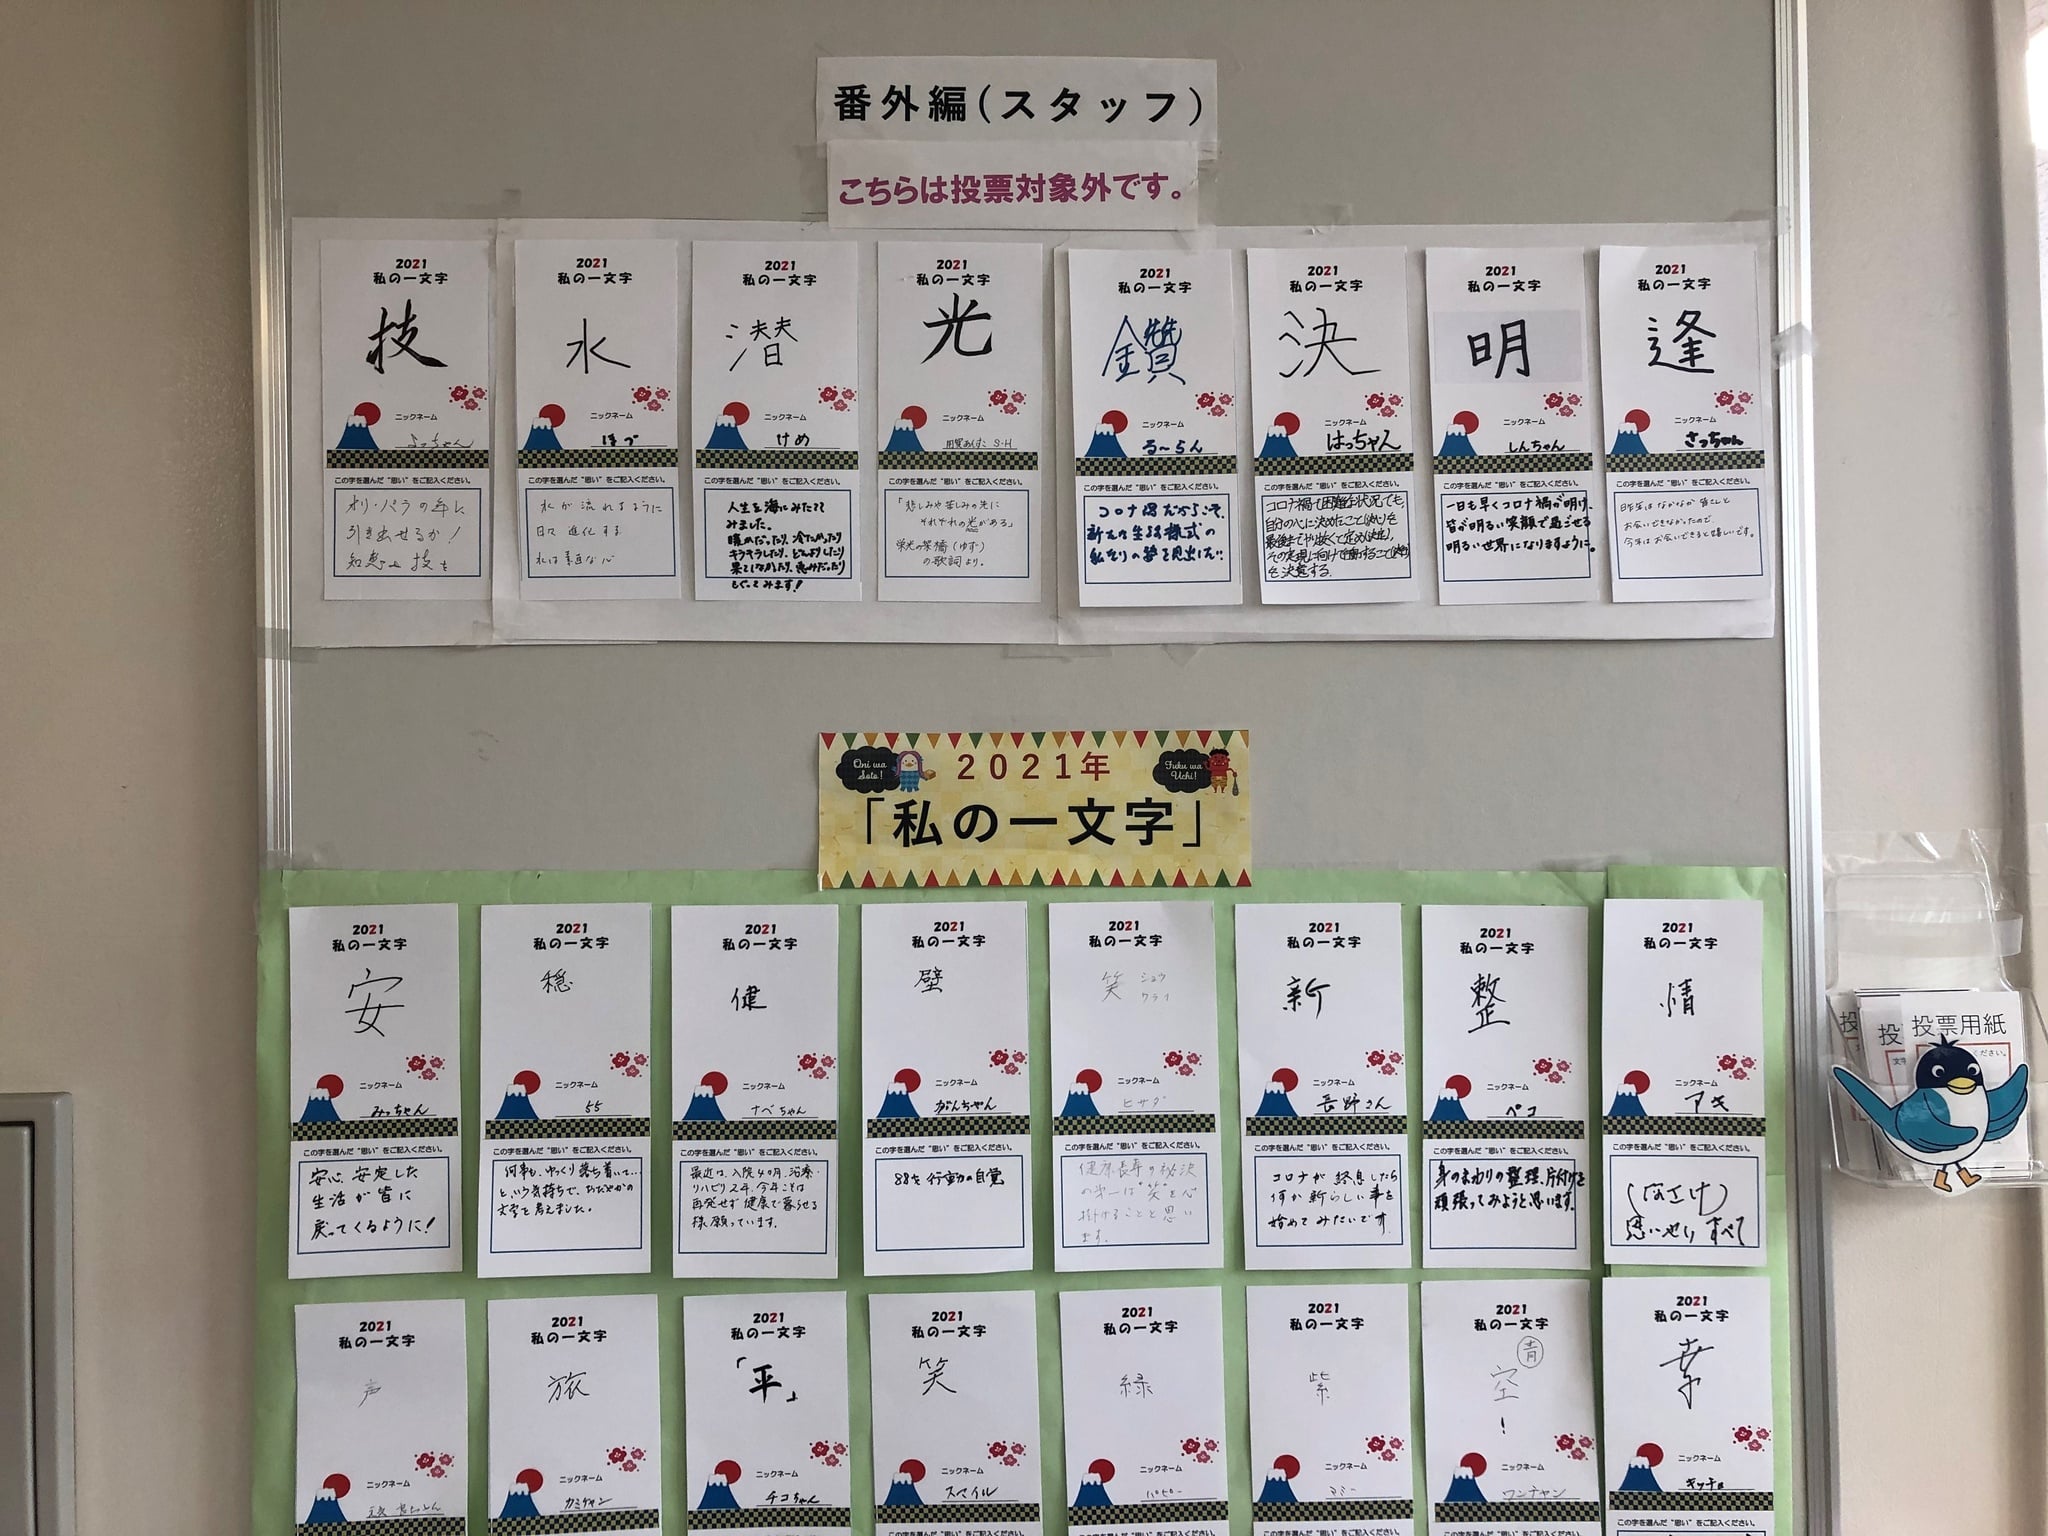 番外編(スタッフ)
こちらは投票対象外です。
2021
私の一文字
技
ニックネーム
よっちゃん
この字を選んだ"思い"をご記入ください。
オリ・パラの年に
引き出せるか!
知恵と技を
2021
私の一文字
水
ニックネーム
この字を選んだ"思い"をご記入ください。
水が流れるように
日々進化する
私は素直な心
2021
私の一文字
潜
ニックネーム
けめ
この字を選んだ"思い"をご記入ください。
人生を海にみたてて
みました。
暖かだったり、冷たかったり
キラキラしたり、どんよりしたり
果てしなかったり、恵みだったり
もぐってみます!
2021
私の一文字
光
ニックネーム
S・H
この字を選んだ"思い"をご記入ください。
「悲しみや苦しみの先に
それぞれの光がある」
栄光の架橋(ゆず)
の歌詞より。
2021
私の一文字
鑽
ニックネーム
る〜らん
この字を選んだ"思い"をご記入ください。
コロナ禍だからこそ、
新たな生活様式の
私なりの夢を見出したい
2021
私の一文字
決
ニックネーム
はっちゃん
この字を選んだ"思い"をご記入ください。
コロナ禍で困難な状況でも、
自分の心に決めたこと(決心)を
最後までやり抜くと定め(決定)、
その実現に向けて行動すること(決行)
を決意する。
2021
私の一文字
明
ニックネーム
しんちゃん
この字を選んだ"思い"をご記入ください。
一日も早くコロナ禍が明け、
皆が明るい笑顔で過ごせる
明るい世界になりますように。
2021
私の一文字
逢
ニックネーム
さっちゃん
この字を選んだ"思い"をご記入ください。
昨年はなかなか皆さんと
お会いできなかったので、
今年はお会いできると嬉しいです。
Oni wa
Soto!
2021年
Fuku wa
Uchi!
「私の一文字」
2021
私の一文字
安
ニックネーム
みっちゃん
この字を選んだ"思い"をご記入ください。
安心、安定した
生活が皆に
戻ってくるように!
2021
私の一文字
穏
ニックネーム
55
この字を選んだ"思い"をご記入ください。
何事も、ゆっくり落ち着いて…
という気持ちで、おだやかの
文字を考えました。
2021
私の一文字
健
ニックネーム
ナベちゃん
この字を選んだ"思い"をご記入ください。
最近は、入院4ヶ月、治療・
リハビリ2年、今年こそは
再発せず健康で暮らせる
様願っています。
2021
私の一文字
壁
ニックネーム
がんちゃん
この字を選んだ"思い"をご記入ください。
88才行動の自覚
2021
私の一文字
笑 ショウ
ワライ
ニックネーム
ヒサダ
この字を選んだ"思い"をご記入ください。
健康長寿の秘決
の第一は"笑"を心
掛けることと思い
ます。
2021
私の一文字
新
ニックネーム
長野さん
この字を選んだ"思い"をご記入ください。
コロナが終息したら
何か新らしい事を
始めてみたいです
2021
私の一文字
整
ニックネーム
ペコ
この字を選んだ"思い"をご記入ください。
身のまわりの整理、片付けを
頑張ってみようと思います。
2021
私の一文字
情
ニックネーム
アキ
この字を選んだ"思い"をご記入ください。
(なさけ)
思いやり すべて
2021
私の一文字
声
ニックネーム
2021
私の一文字
旅
ニックネーム
カミチャン
2021
私の一文字
「平」
ニックネーム
チコちゃん
2021
私の一文字
笑
ニックネーム
スマイル
2021
私の一文字
緑
ニックネーム
ハッピー
2021
私の一文字
紫
ニックネーム
2021
私の一文字
青
空
!
ニックネーム
ワンチャン
2021
私の一文字
幸
ニックネーム
投
投
投票用紙